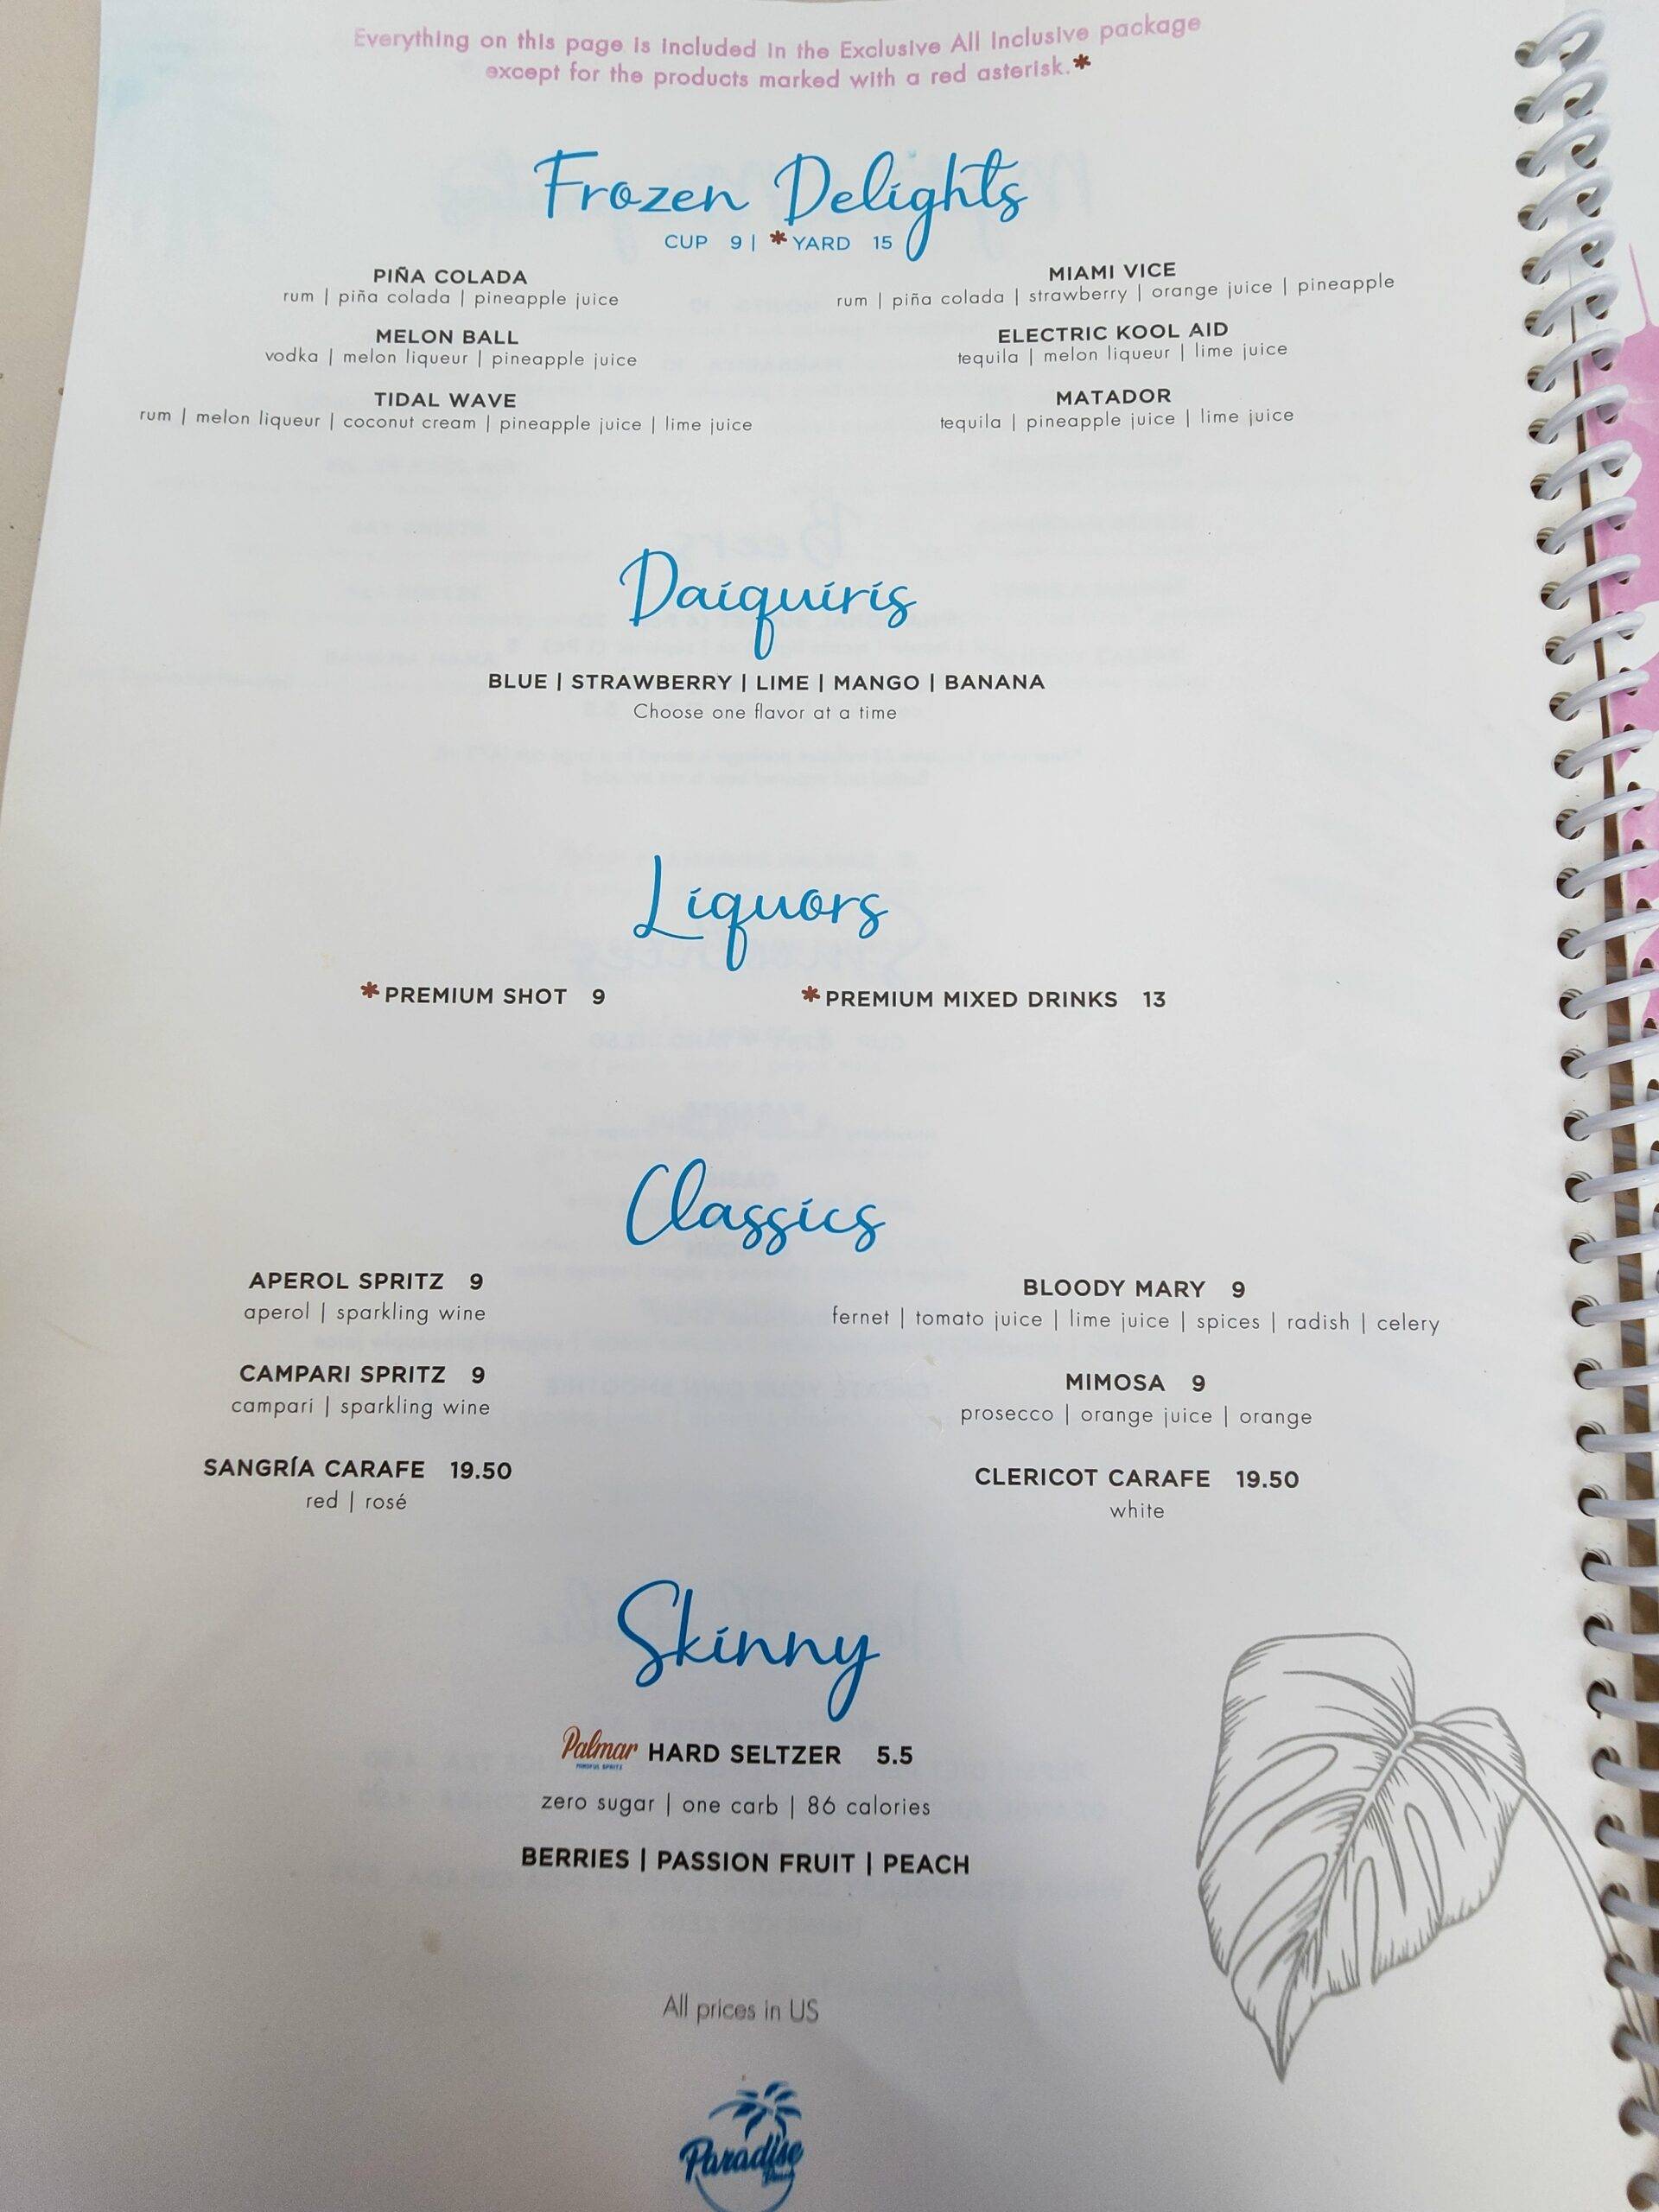 Everything on this page is included in the Exclusive All Inclusive package
except for the products marked with a red asterisk.*
Frozen Delights
CUP 9 | *YARD 15
PIÑA COLADA
rum | piña colada | pineapple juice
MIAMI VICE
rum | piña colada | strawberry | orange juice | pineapple
MELON BALL
vodka | melon liqueur | pineapple juice
ELECTRIC KOOL AID
tequila | melon liqueur | lime juice
TIDAL WAVE
rum | melon liqueur | coconut cream | pineapple juice | lime juice
MATADOR
tequila | pineapple juice | lime juice
Daiquiris
BLUE | STRAWBERRY | LIME | MANGO | BANANA
Choose one flavor at a time
Liquors
*PREMIUM SHOT 9
*PREMIUM MIXED DRINKS 13
Classics
APEROL SPRITZ 9
aperol | sparkling wine
BLOODY MARY 9
fernet | tomato juice | lime juice | spices | radish | celery
CAMPARI SPRITZ 9
campari | sparkling wine
MIMOSA 9
prosecco | orange juice | orange
SANGRÍA CARAFE 19.50
red | rosé
CLERICOT CARAFE 19.50
white
Skinny
Palmar HARD SELTZER 5.5
MINDFUL SPRITZ
zero sugar | one carb | 86 calories
BERRIES | PASSION FRUIT | PEACH
All prices in US
Paradise
Beach